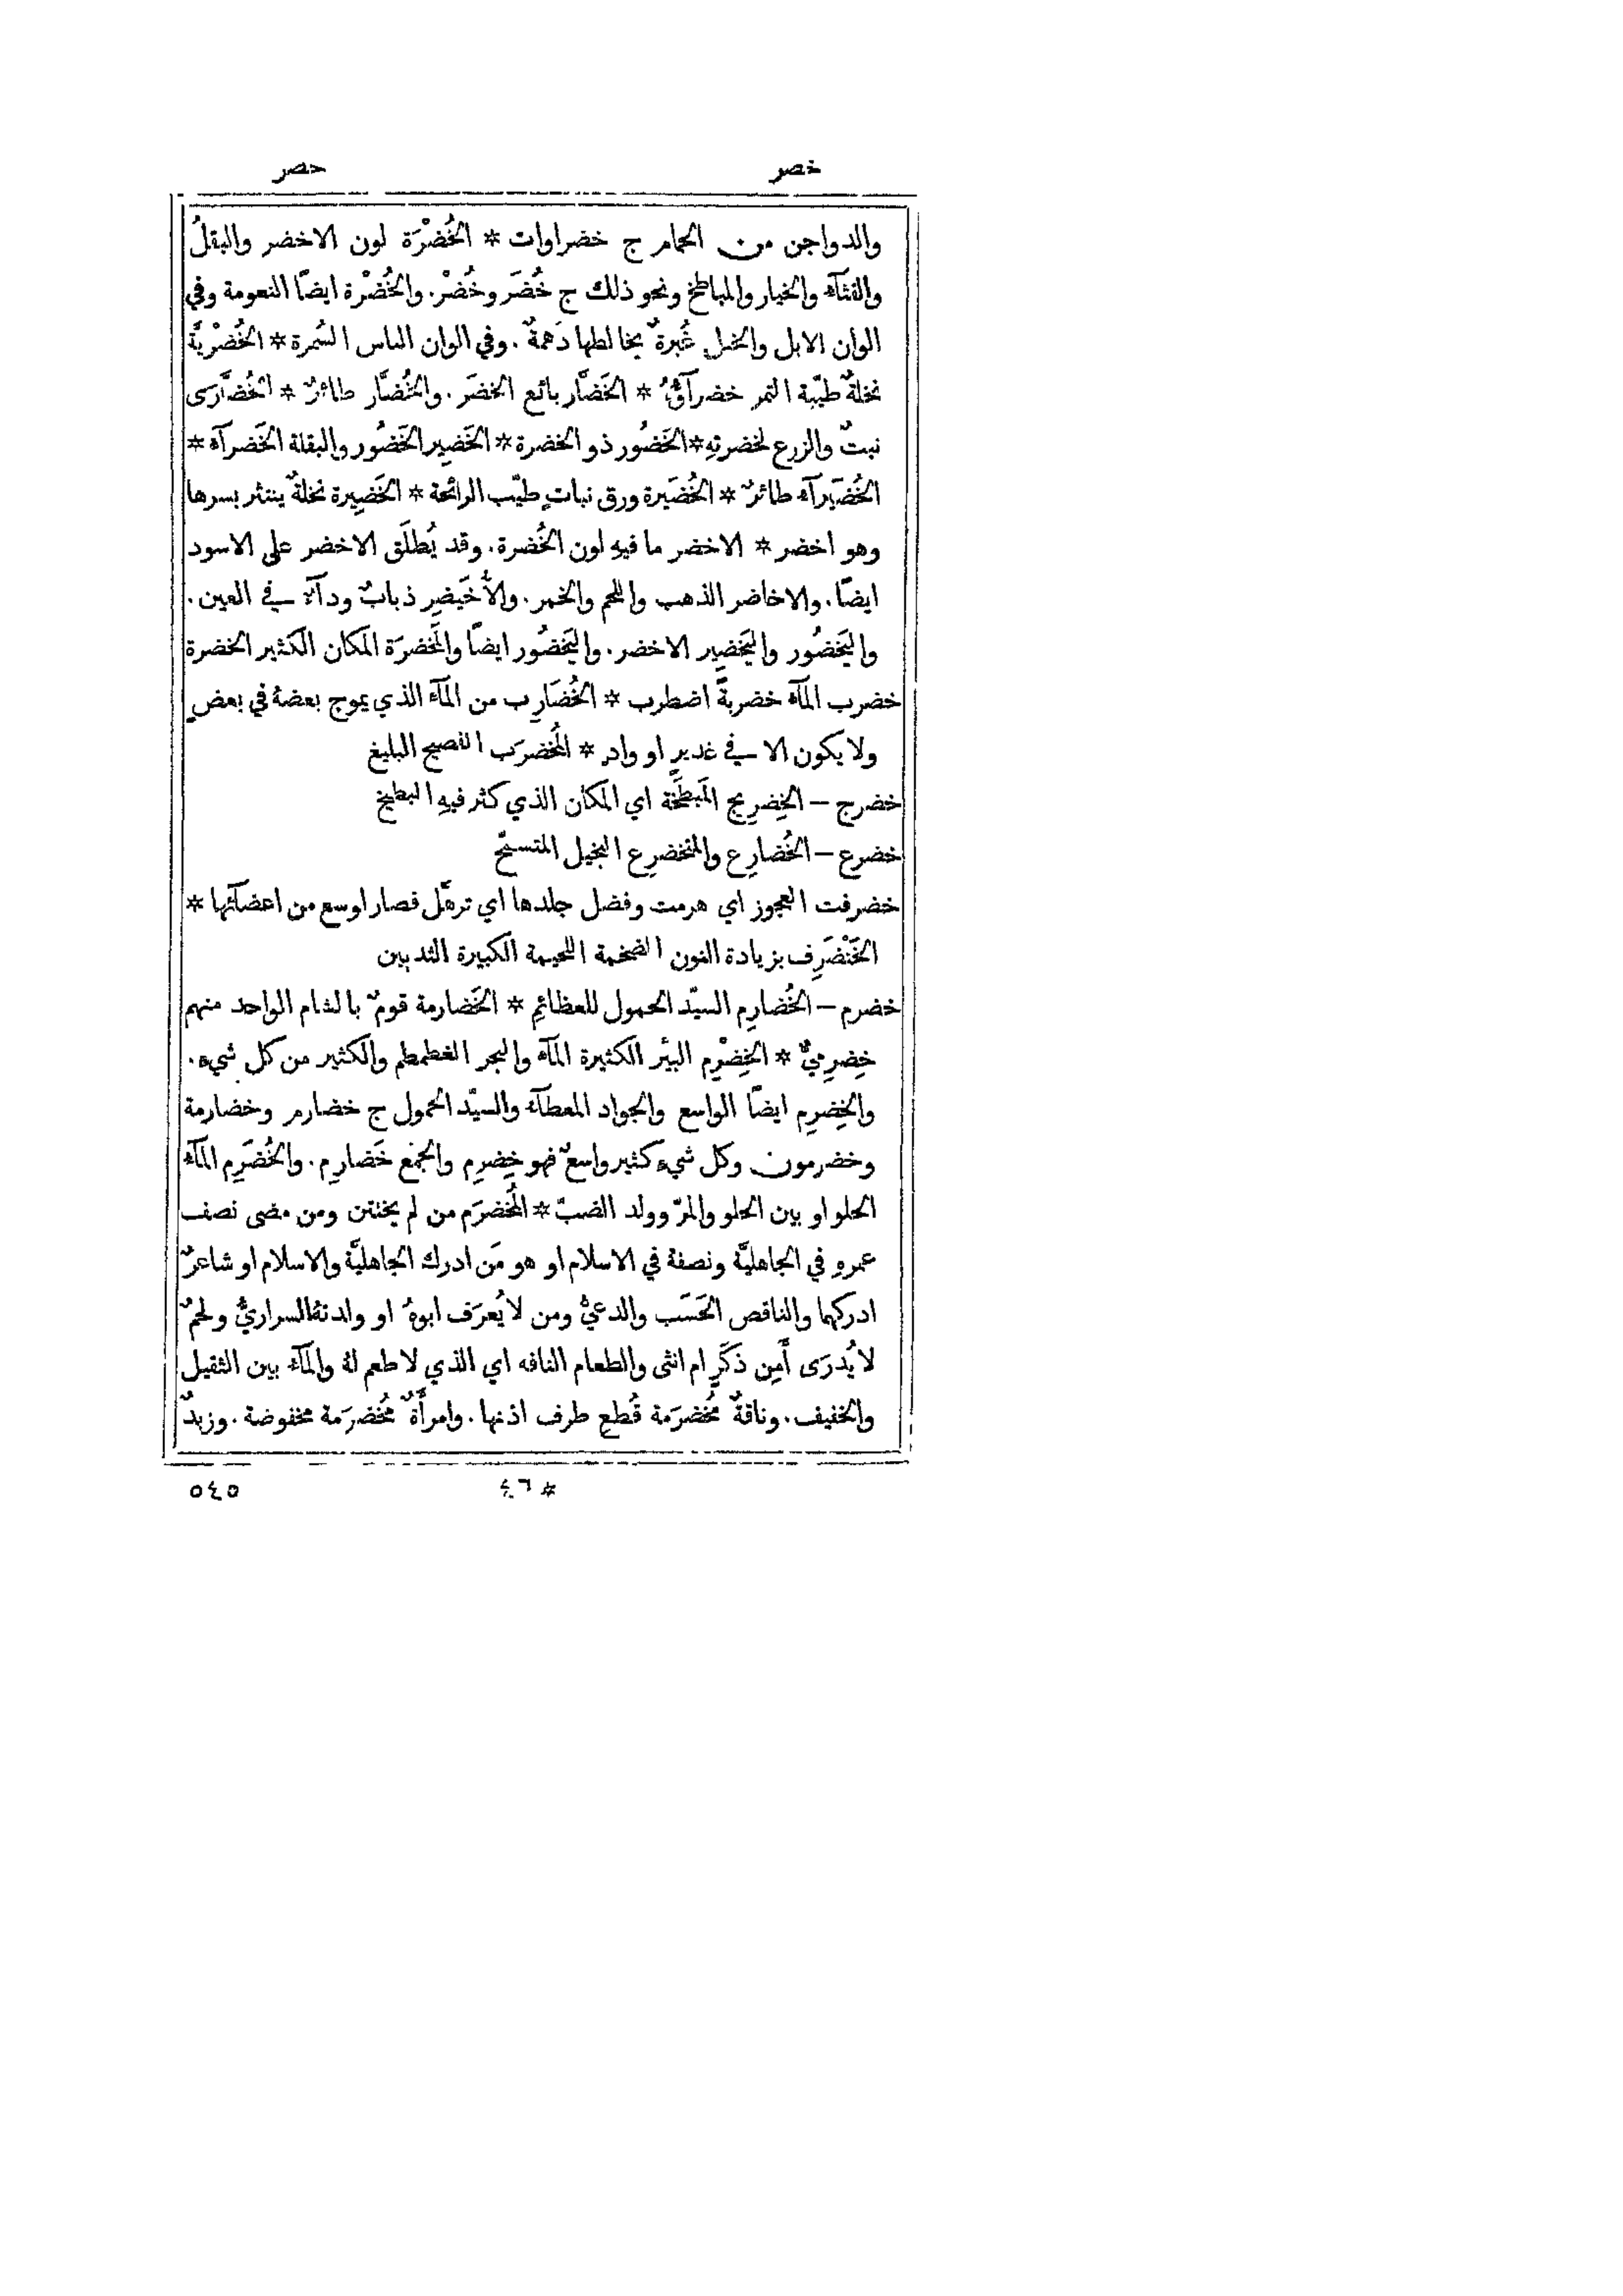 خضر حضر
والدواجن من الحمام ج خضراوات * الخُضْرَة لون الاخضر والبقلُ
والقثآء والخيار والمباطخ ونحو ذلك ج خُضَر وخُضْر. والخُضْرة ايضًا النعومة وفي
الوان الابل والخيل غُبرةٌ يخالطها دُهمةٌ. وفي الوان الناس السُمرة * الخُضْريَّة
نخلةٌ طيّبة التمر خضرآؤُهُ * الخَضَّار بائع الخضَر. والخُضَّار طائرٌ * الخُضَّارَى
نبتٌ والزرع لخضرتهِ * الخَضُور ذو الخضرة * الخَضِير الخَضُور والبقلة الخَضرآء *
الخُضَيرآء طائرٌ * الخُضَيرة ورق نباتٍ طيّب الرائحة * الخَضِيرة نخلةٌ ينتثر بسرها
وهو اخضر * الاخضر ما فيهِ لون الخُضرة. وقد يُطلَق الاخضر على الاسود
ايضًا. والاخاضر الذهب واللحم والخمر. والأُخَيضِر ذبابٌ ودآءٌ في العين.
واليَخضُور واليَخضِير الاخضر. واليَخضُور ايضًا والمَخضرَة المكان الكثير الخضرة
خضرب المآء خضربةً اضطرب * الخُضَارِب من المآء الذي يموج بعضهُ في بعضٍ
ولا يكون الا في غديرٍ او وادٍ * المُخضرَب الفصيح البليغ
خضرج – الخِضرِيج المَبطَخة اي المكان الذي كثر فيهِ البطيخ
خضرع – الخُضارِع والمتخضرِع البخيل المتسمّح
خضرفت العجوز اي هرمت وفضل جلدها اي ترهَّل فصار اوسع من اعضآئها *
الخَنْضَرِف بزيادة النون الضخمة اللحيمة الكبيرة الثديين
خضرم – الخُضارِم السيّد الحمول للعظائِمِ * الخَضارمة قومٌ بالشام الواحد منهم
خِضرِميٌّ * الخِضْرِم البئر الكثيرة المآء والبحر الغطمطم والكثير من كل شيءٍ.
والخِضرِم ايضًا الواسع والجواد المعطآء والسيّد الحمول ج خضارم وخضارمة
وخضرمون وكل شيءٍ كثير واسعٌ فهو خِضرِم والجمع خَضارِم. والخُضَرِم المآء
الحلو او بين الحلو والمرّ وولد الضبّ * المُخضرَم من لم يختتن ومن مضى نصف
عمرهِ في الجاهليَّة ونصفهُ في الاسلام او هو مَن ادرك الجاهليَّة والاسلام او شاعرٌ
ادركهما والناقص الحَسَب والدعيُّ ومن لا يُعرَف ابوهُ او ولدتهُ السراريُّ ولحمٌ
لا يُدرَى أَمِن ذَكَرٍ ام انثى والطعام التافه اي الذي لا طعم لهُ والمآء بين الثقيل
والخفيف. وناقةٌ مُخضرَمة قُطع طرف اذنها. وامرأَةٌ مُخضرَمة مخفوضة. وزبدٌ
* ٤٦ ٥٤٥